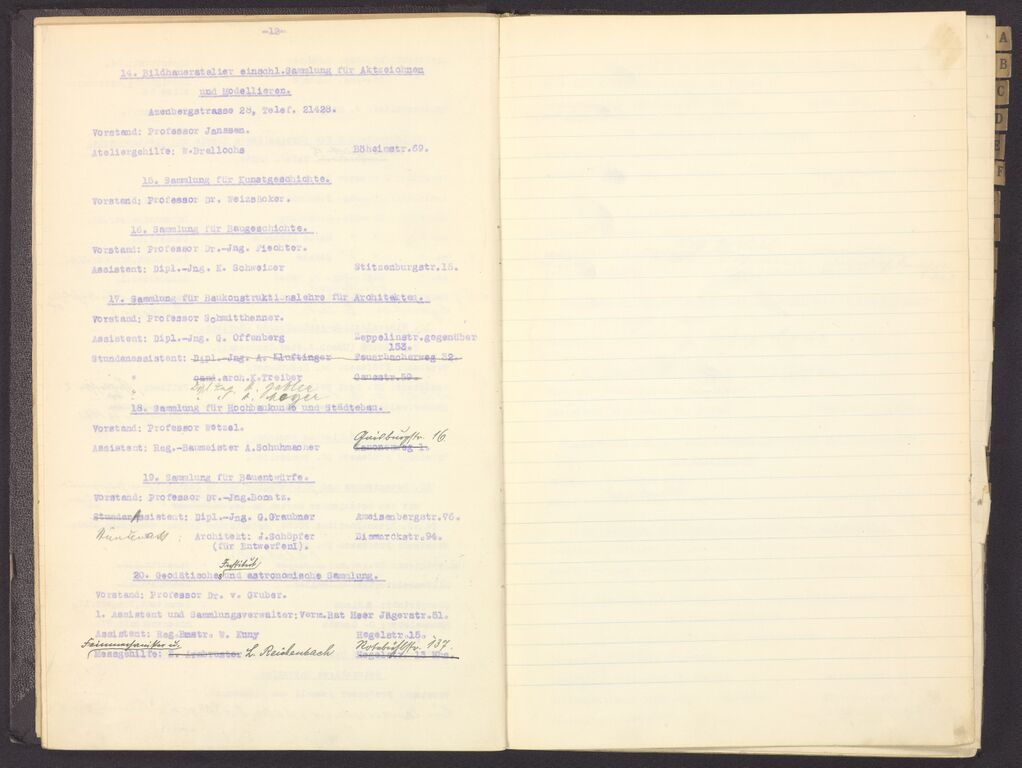 -12-
14. Bildhaueratelier einschl.Sammlung für Aktzeichnen
und Modellieren.
Azenbergstrasse 28, Telef. 21428.
Vorstand: Professor Janssen.
Ateliergehilfe: W.Drellochs Böheimstr.69.
15. Sammlung für Kunstgeschichte.
Vorstand: Professor Dr. Weizsäcker.
16. Sammlung für Baugeschichte.
Vorstand: Professor Dr.-Jng. Fiechter.
Assistent: Dipl.-Jng. E. Schweizer Stitzenburgstr.15.
17. Sammlung für Baukonstruktionslehre für Architekten.
Vorstand: Professor Schmitthenner.
Assistent: Dipl.-Jng. G. Offenberg Zeppelinstr.gegenüber
153.
Stundenassistent: Dipl.-Jng. A. Kluftinger Feuerbacherweg 32.
" cand.arch.K.Treiber Gausstr.59.
" Dipl Ing.
"
18. Sammlung für Hochbaukunde und Städtebau.
Vorstand: Professor Wetzel.
Assistent: Reg.-Baumeister A.Schuhmacher str. 16
19. Sammlung für Bauentwürfe.
Vorstand: Professor Dr.-Jng.Bonatz.
Stunden Assistent: Dipl.-Jng. G.Graubner Ameisenbergstr.96.
: Architekt: J.Schöpfer Bismarckstr.94.
(für Entwerfen1).
Institut
20. Geodätisches und astronomische Sammlung.
Vorstand: Professor Dr. v. Gruber.
1. Assistent und Sammlungsverwalter:Verm.Rat Heer Jägerstr.51.
Assistent: Reg.Bmstr. W. Kuny Hegelstr.15.
Feinmechaniker u. Rotebühlstr. 137.
Messgehilfe: E. Armbruster L. Reichenbach Hegelstr. 13
A
B
C
D
E
F